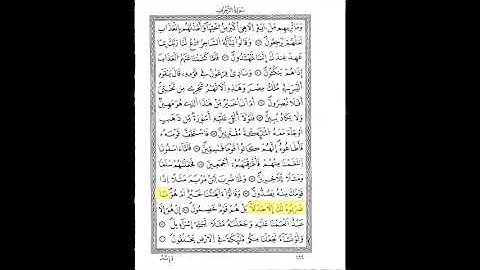 سُورَةُ الزُّخْرُفِ
وَمَا نُرِيهِم مِّنْ ءَايَةٍ إِلَّا هِيَ أَكْبَرُ مِنْ أُخْتِهَا وَأَخَذْنَٰهُم بِالْعَذَابِ
لَعَلَّهُمْ يَرْجِعُونَ ۝ وَقَالُوا يَٰٓأَيُّهَ السَّاحِرُ ادْعُ لَنَا رَبَّكَ بِمَا
عَهِدَ عِندَكَ إِنَّنَا لَمُهْتَدُونَ ۝ فَلَمَّا كَشَفْنَا عَنْهُمُ الْعَذَابَ
إِذَا هُمْ يَنكُثُونَ ۝ وَنَادَىٰ فِرْعَوْنُ فِي قَوْمِهِ قَالَ يَٰقَوْمِ
أَلَيْسَ لِي مُلْكُ مِصْرَ وَهَٰذِهِ الْأَنْهَٰرُ تَجْرِي مِن تَحْتِي
أَفَلَا تُبْصِرُونَ ۝ أَمْ أَنَا خَيْرٌ مِّنْ هَٰذَا الَّذِي هُوَ مَهِينٌ
وَلَا يَكَادُ يُبِينُ ۝ فَلَوْلَا أُلْقِيَ عَلَيْهِ أَسْوِرَةٌ مِّن ذَهَبٍ
أَوْ جَاءَ مَعَهُ الْمَلَٰئِكَةُ مُقْتَرِنِينَ ۝ فَاسْتَخَفَّ قَوْمَهُ
فَأَطَاعُوهُ إِنَّهُمْ كَانُوا قَوْمًا فَٰسِقِينَ ۝ فَلَمَّا ءَاسَفُونَا
انتَقَمْنَا مِنْهُمْ فَأَغْرَقْنَٰهُمْ أَجْمَعِينَ ۝ فَجَعَلْنَٰهُمْ سَلَفًا
وَمَثَلًا لِّلْءَاخِرِينَ ۝ وَلَمَّا ضُرِبَ ابْنُ مَرْيَمَ مَثَلًا إِذَا
قَوْمُكَ مِنْهُ يَصِدُّونَ ۝ وَقَالُوا ءَأَٰلِهَتُنَا خَيْرٌ أَمْ هُوَ مَا
ضَرَبُوهُ لَكَ إِلَّا جَدَلًا بَلْ هُمْ قَوْمٌ خَصِمُونَ ۝ إِنْ هُوَ إِلَّا
عَبْدٌ أَنْعَمْنَا عَلَيْهِ وَجَعَلْنَٰهُ مَثَلًا لِّبَنِي إِسْرَٰٓءِيلَ ۝
وَلَوْ نَشَاءُ لَجَعَلْنَا مِنكُم مَّلَٰئِكَةً فِي الْأَرْضِ يَخْلُفُونَ ۝
وَإِنَّهُ